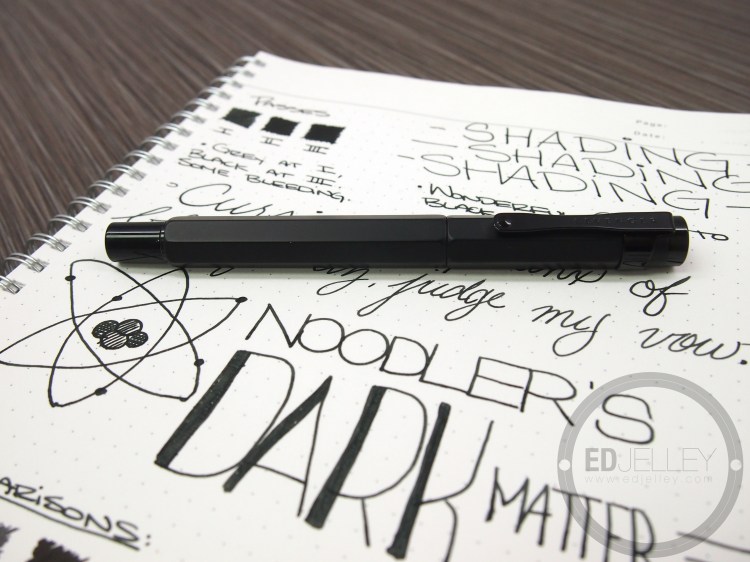 Page:
Date:
PASSES
I II III
• GREY AT I,
BLACK AT III.
SOME BLEEDING.
- SHADING -
- SHADING
- SHADING -
• WONDERFUL
BLACK
TO
of
judge my vow.
NOODLER'S
DARK
MATTER
EDJELLEY
www.edjelley.com
ARISONS: